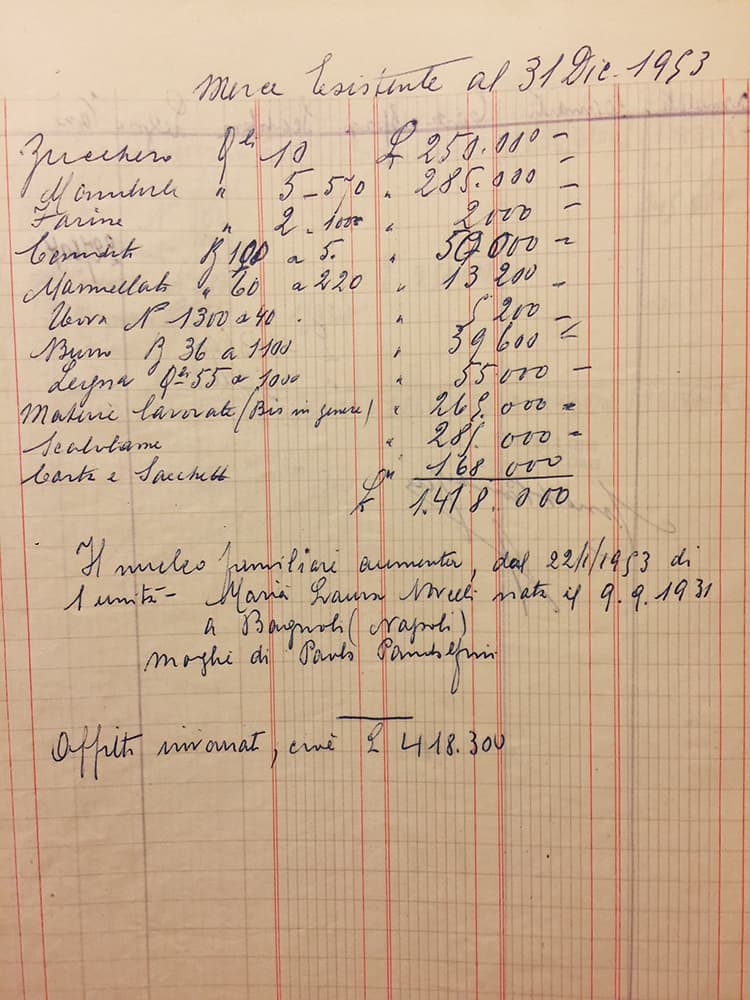 Merce Esistente al 31 Dic. 1953
Zucchero Qli 10 £ 250.000 =
Mandorle " 5 - 570 " 285.000 =
Farine " 2 - 1000 " 2000 =
Canditi 100 a 5. " 50000 =
Marmellate " 60 a 220 " 13 200 =
Uova N° 1300 a 40 . " 5 200 =
Burro 36 a 1100 " 39 600 =
Legna Qli 55 a 1000 " 55000 =
Materie lavorate (Bis in genere) " 265.000 =
Scatolame " 285 000 =
Carta e Sacchetti " 168 000
£ 1.418.000
Il nucleo familiare aumenta, dal 22/1/1953 di
1 unità - Maria Laura nata il 9.9.1931
a Bagnoli (Napoli)
moglie di Paolo Pandolfini
Affitti invariati, cioè £ 418.300